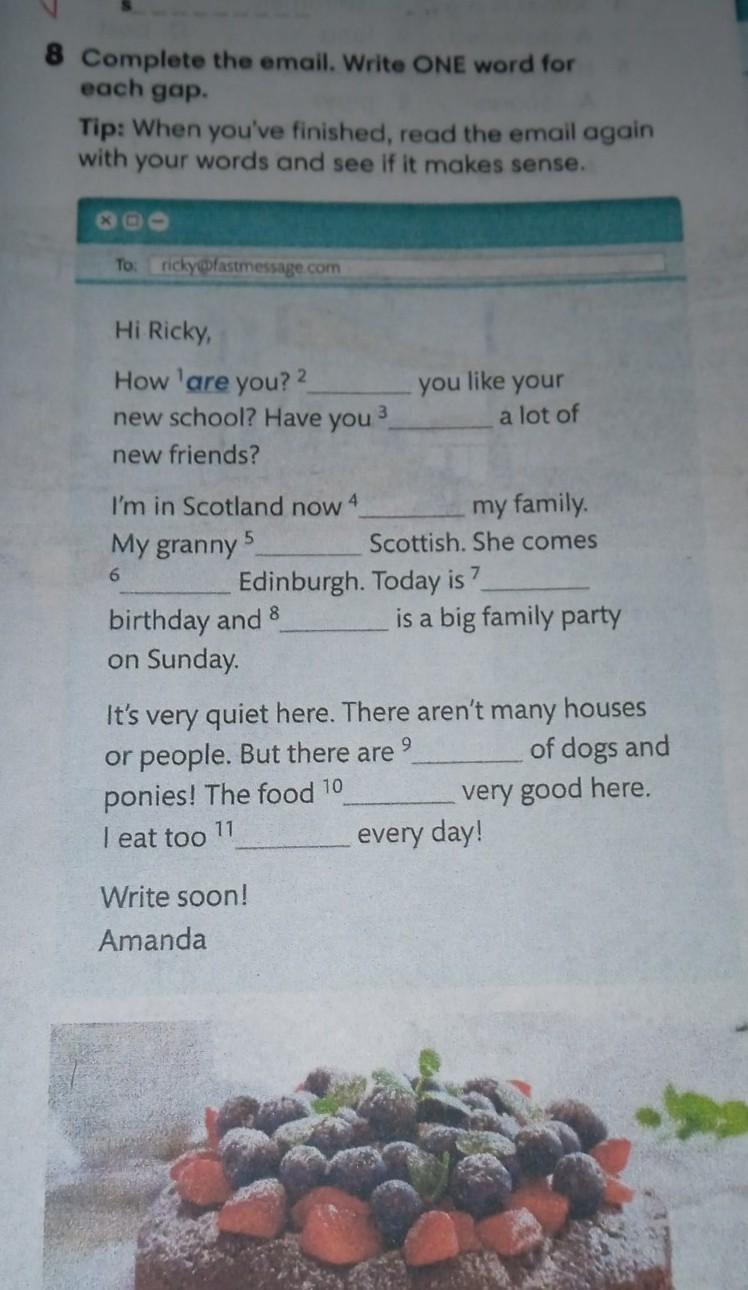 8 Complete the email. Write ONE word for
each gap.
Tip: When you've finished, read the email again
with your words and see if it makes sense.
To: ricky@fastmessage.com
Hi Ricky,
How ¹are you? ²________ you like your
new school? Have you ³________ a lot of
new friends?
I'm in Scotland now ⁴________ my family.
My granny ⁵________ Scottish. She comes
⁶________ Edinburgh. Today is ⁷________
birthday and ⁸________ is a big family party
on Sunday.
It's very quiet here. There aren't many houses
or people. But there are ⁹________ of dogs and
ponies! The food ¹⁰________ very good here.
I eat too ¹¹________ every day!
Write soon!
Amanda